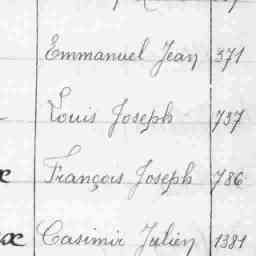 Emmanuel Jean 371
Louis Joseph 737
François Joseph 786
Casimir Julien 1381